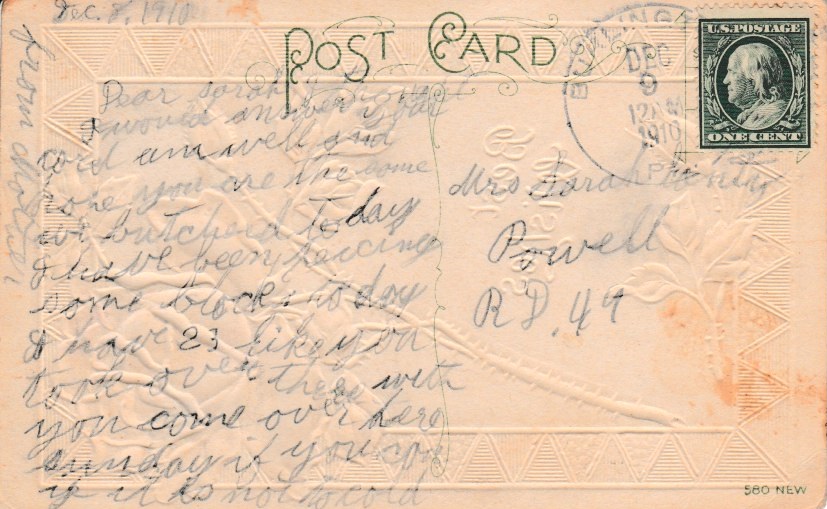 Dec. 8, 1910
POST CARD
Dear Sarah I thought I
would answer your
card am well and
hope you are the same
we butcherd to day
I have been peicing
some blocks to day
I have 23 like you
took over there with
you come over here
sunday if you can
if it is not to cold
from
BURLINGA
DEC
9
12AM
1910
PA
U.S. POSTAGE
ONE CENT
Mrs Sarah
Powell
R D. 49
Best
Wishes
580 NEW